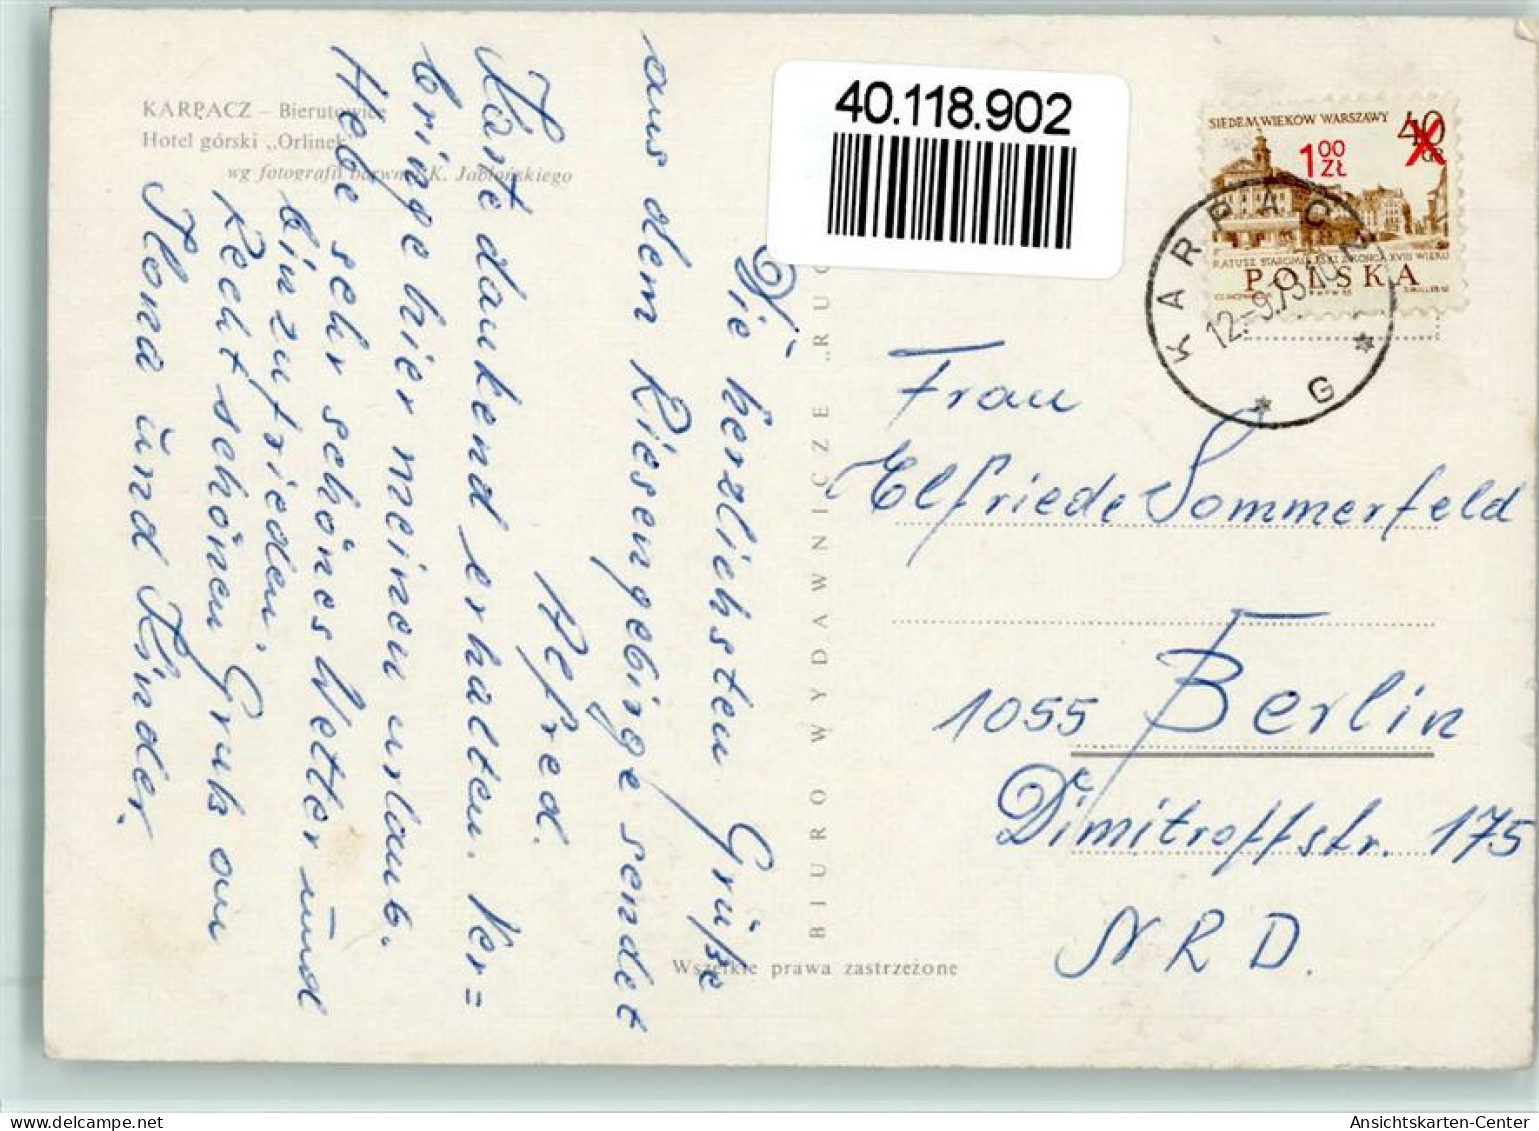 KARPACZ – Bierutowice
Hotel górski „Orlinek"
wg fotografii barwnej K. Jabłońskiego
40.118.902
SIEDEM WIEKÓW WARSZAWY
40
GR
1 00 ZŁ
RATUSZ STAROMIEJSKI Z KOŃCA XVIII WIEKU
POLSKA
KARPACZ
12.-9.73
G
BIURO WYDAWNICZE „RUC
Die herzlichsten Grüße
aus dem Riesengebirge sendet
Alfred.
Karte dankend erhalten. Ver=
bringe hier meinen urlaub.
Habe sehr schönes Wetter und
bin zufrieden.
Recht schönen Gruß an
Ilona und Kinder.
Frau
Elfriede Sommerfeld
1055 Berlin
Dimitroffstr. 175
NRD.
Wszelkie prawa zastrzeżone
www.delcampe.net
kartenplanet
AnsichtsKarten-Center